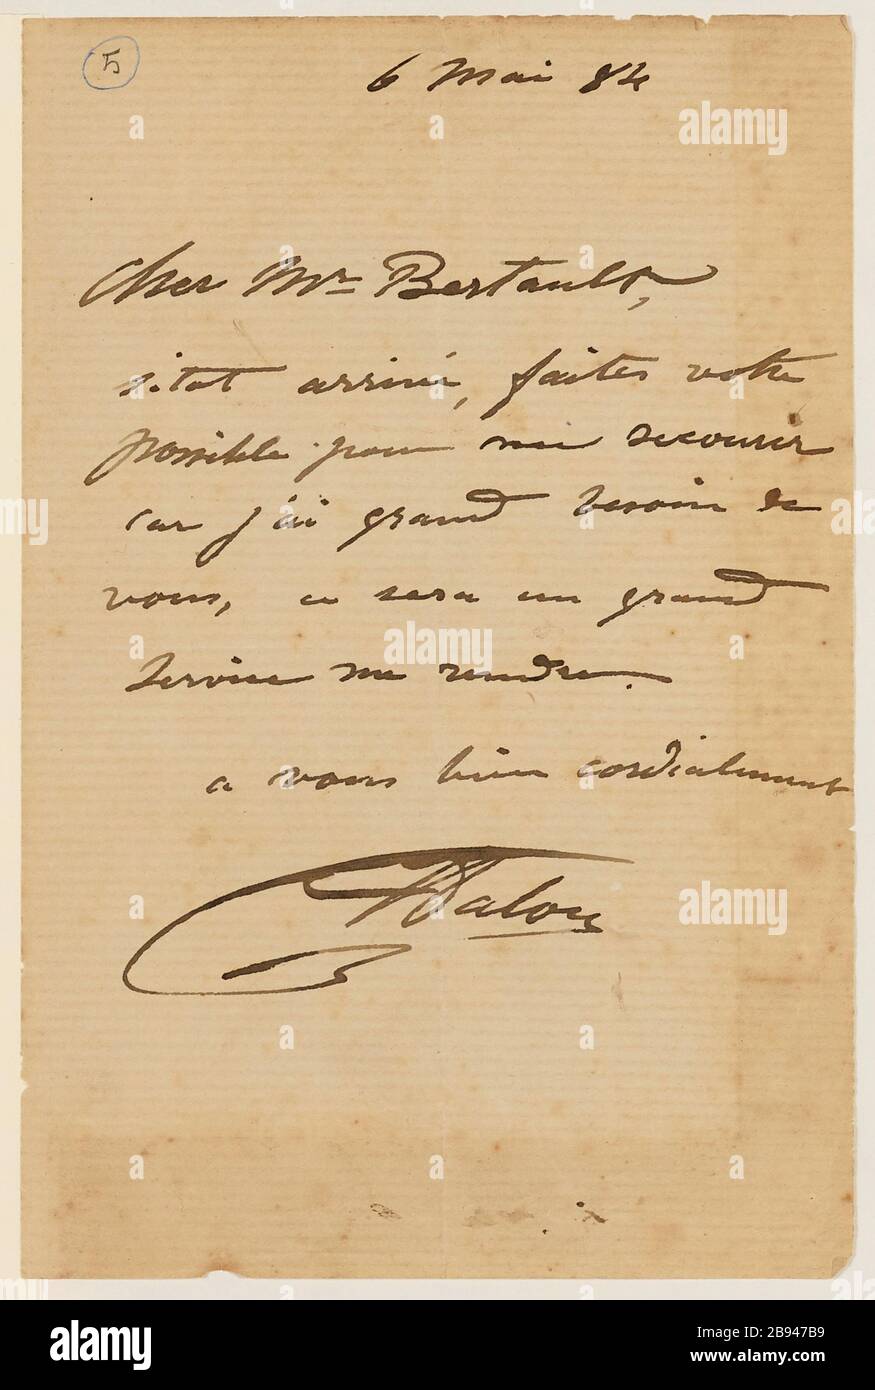 5
6 Mai 84
Cher Mr Bertault,
sitot arrivé, faites votre
possible pour me secourir
car j'ai grand besoin de
vous, ce sera un grand
service me rendre.
a vous bien cordialement
Dalou
alamy
Image ID: 2B947B9
www.alamy.com